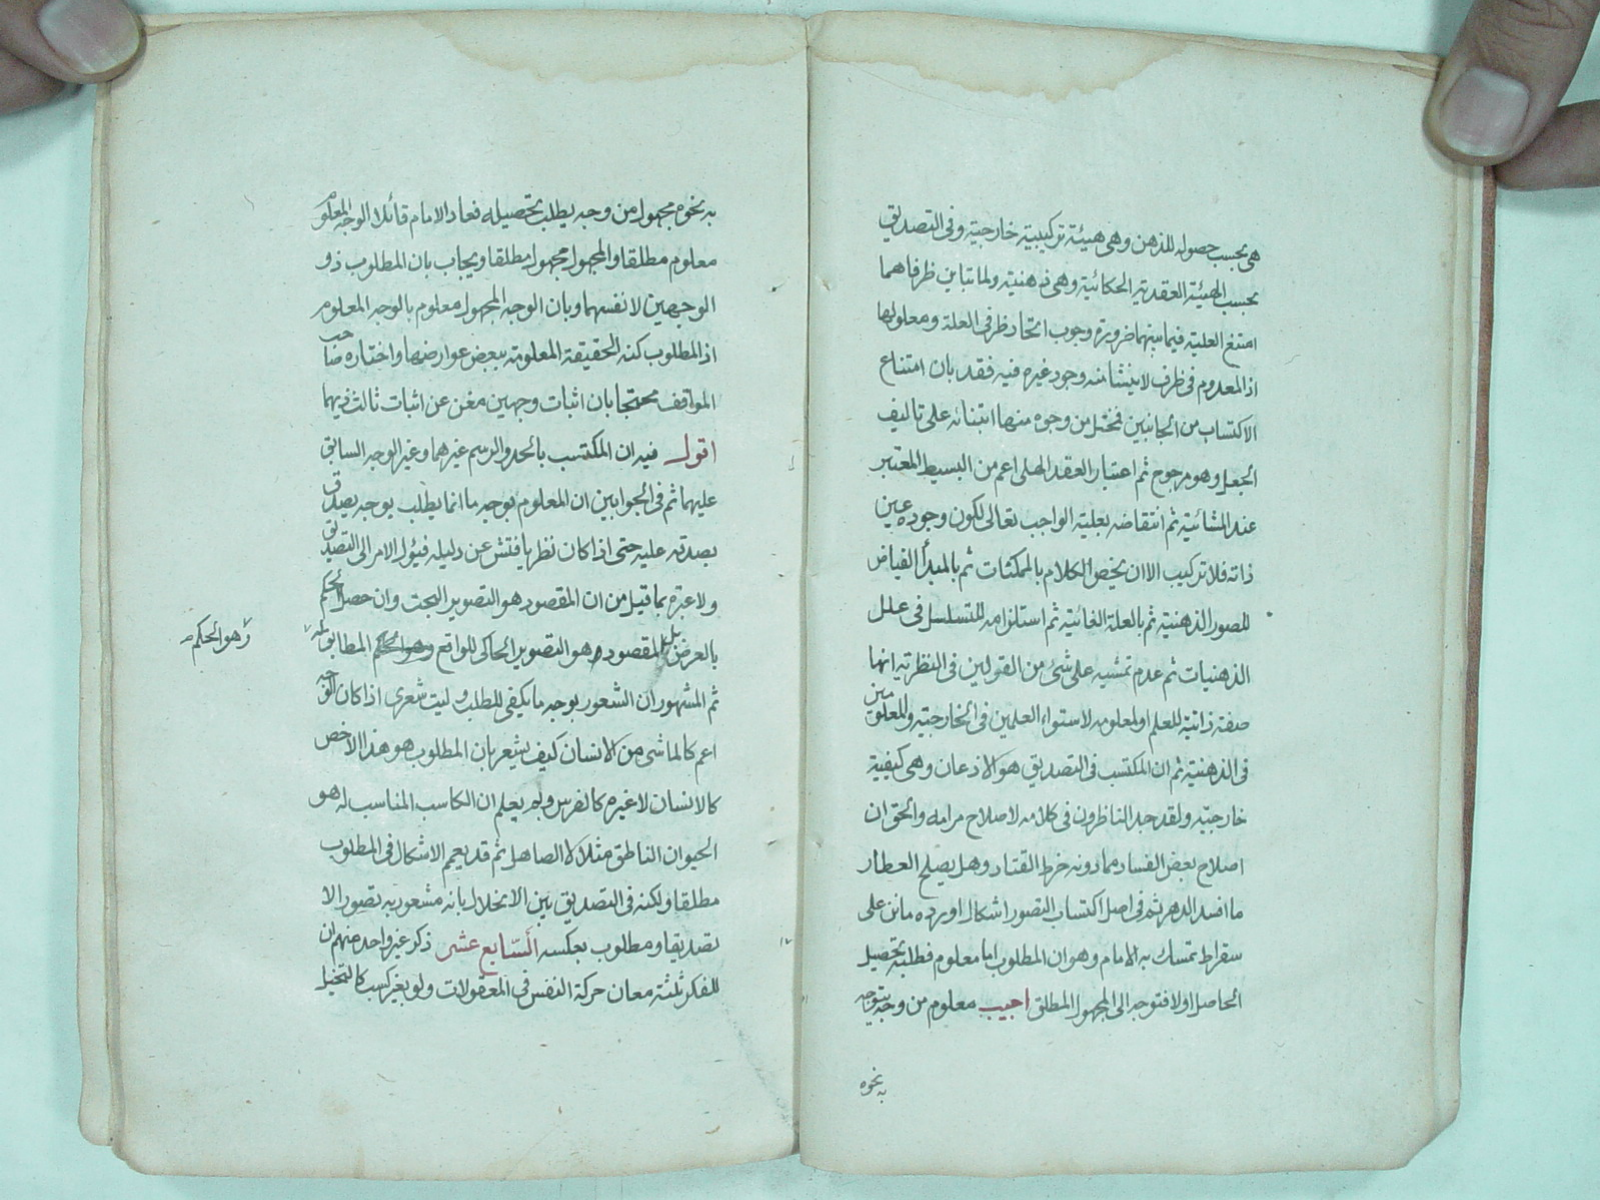 هى بحسب حصوله للذهن وهى هيئة تركيبية خارجية وفى التصديق
بحسب الهيئة العقدية الحكائية وهى ذهنية ولما تباين ظرفاهما
امتنع العلية فيما بينهما ضرورة وجوب اتحاد ظرفى العلة ومعلولها
اذ المعدوم فى ظرف لا ينشا منه وجود غيره فيه فقد بان امتناع
الاكتساب من الجانبين فمختل من وجوه منها ابتنائه على تاليف
الجعل وهو مرجوح ثم اعتبار العقد الهلى اعم من البسيط المعتبر
عند المشائية ثم انتقاضه بعلية الواجب تعالى لكون وجوده عين
ذاته فلا تركيب الا ان يخص الكلام بالممكنات ثم بالمبدأ الفياض
للصور الذهنية ثم بالعلة الغائية ثم استلزامه للتسلسل فى علل
الذهنيات ثم عدم تمشيه على شئ من القولين فى النظرية انها
صفة ذاتية للعلم او لمعلومه لاستواء العلمين فى الخارجية والمعلومين
فى الذهنية ثم ان المكتسب فى التصديق هو الاذعان وهى كيفية
خارجية ولقد جد الناظرون فى كلامه لاصلاح مرامه والحق ان
اصلاح بعض الفساد مما دونه خرط القتاد وهل يصلح العطار
ما افسد الدهر ثم فى اصل اكتساب التصور اشكال اورده مانن على
سقراط تمسك به الامام وهو ان المطلوب اما معلوم فطلبه تحصيل
الحاصل او لا فتوجه الى المجهول المطلق اجيب معلوم من وجه يتوجه
به نحوه
به نحوه مجهول من وجه يطلب تحصيله فعاد الامام قائلا الوجه المعلوم
معلوم مطلقا والمجهول مجهول مطلقا ويجاب بان المطلوب ذو
الوجهين لا نفسهما وبان الوجه المجهول معلوم بالوجه المعلوم
اذ المطلوب كنه الحقيقة المعلومة ببعض عوارضها واختاره صاحب
المواقف محتجا بان اثبات وجهين مغن عن اثبات ثالث ذيهما
اقول فيه ان المكتسب بالحد والرسم غيرهما وغير الوجه السابق
عليهما ثم فى الجوابين ان المعلوم بوجه ما انما يطلب بوجه يصدق
بصدقه عليه حتى اذا كان نظريا فتش عن دليله فيئول الامر الى التصديق
ولا عبرة بما قيل من ان المقصود هو التصوير البحت وان حصل الحكم
بالعرض بل المقصود هو التصوير الحاكى للواقع المطابق له
وهو الحكم
ثم المشهور ان الشعور بوجه ما يكفى للطلب وليت شعرى اذا كان الوجه
اعم كالماشى من الانسان كيف يشعر بان المطلوب هو هذا الاخص
كالانسان لا غيره كالفرس وبم يعلم ان الكاسب المناسب له هو
الحيوان الناطق مثلا لا الصاهل ثم قد يعمم الاشكال فى المطلوب
مطلقا ولكنه فى التصديق بين الانحلال بانه مشعور به تصورا لا
تصديقا ومطلوب بعكسه السابع عشر ذكر غير واحد منهم ان
للفكر ثلثة معان حركة النفس فى المعقولات ولو بغير كسب كالتخيل